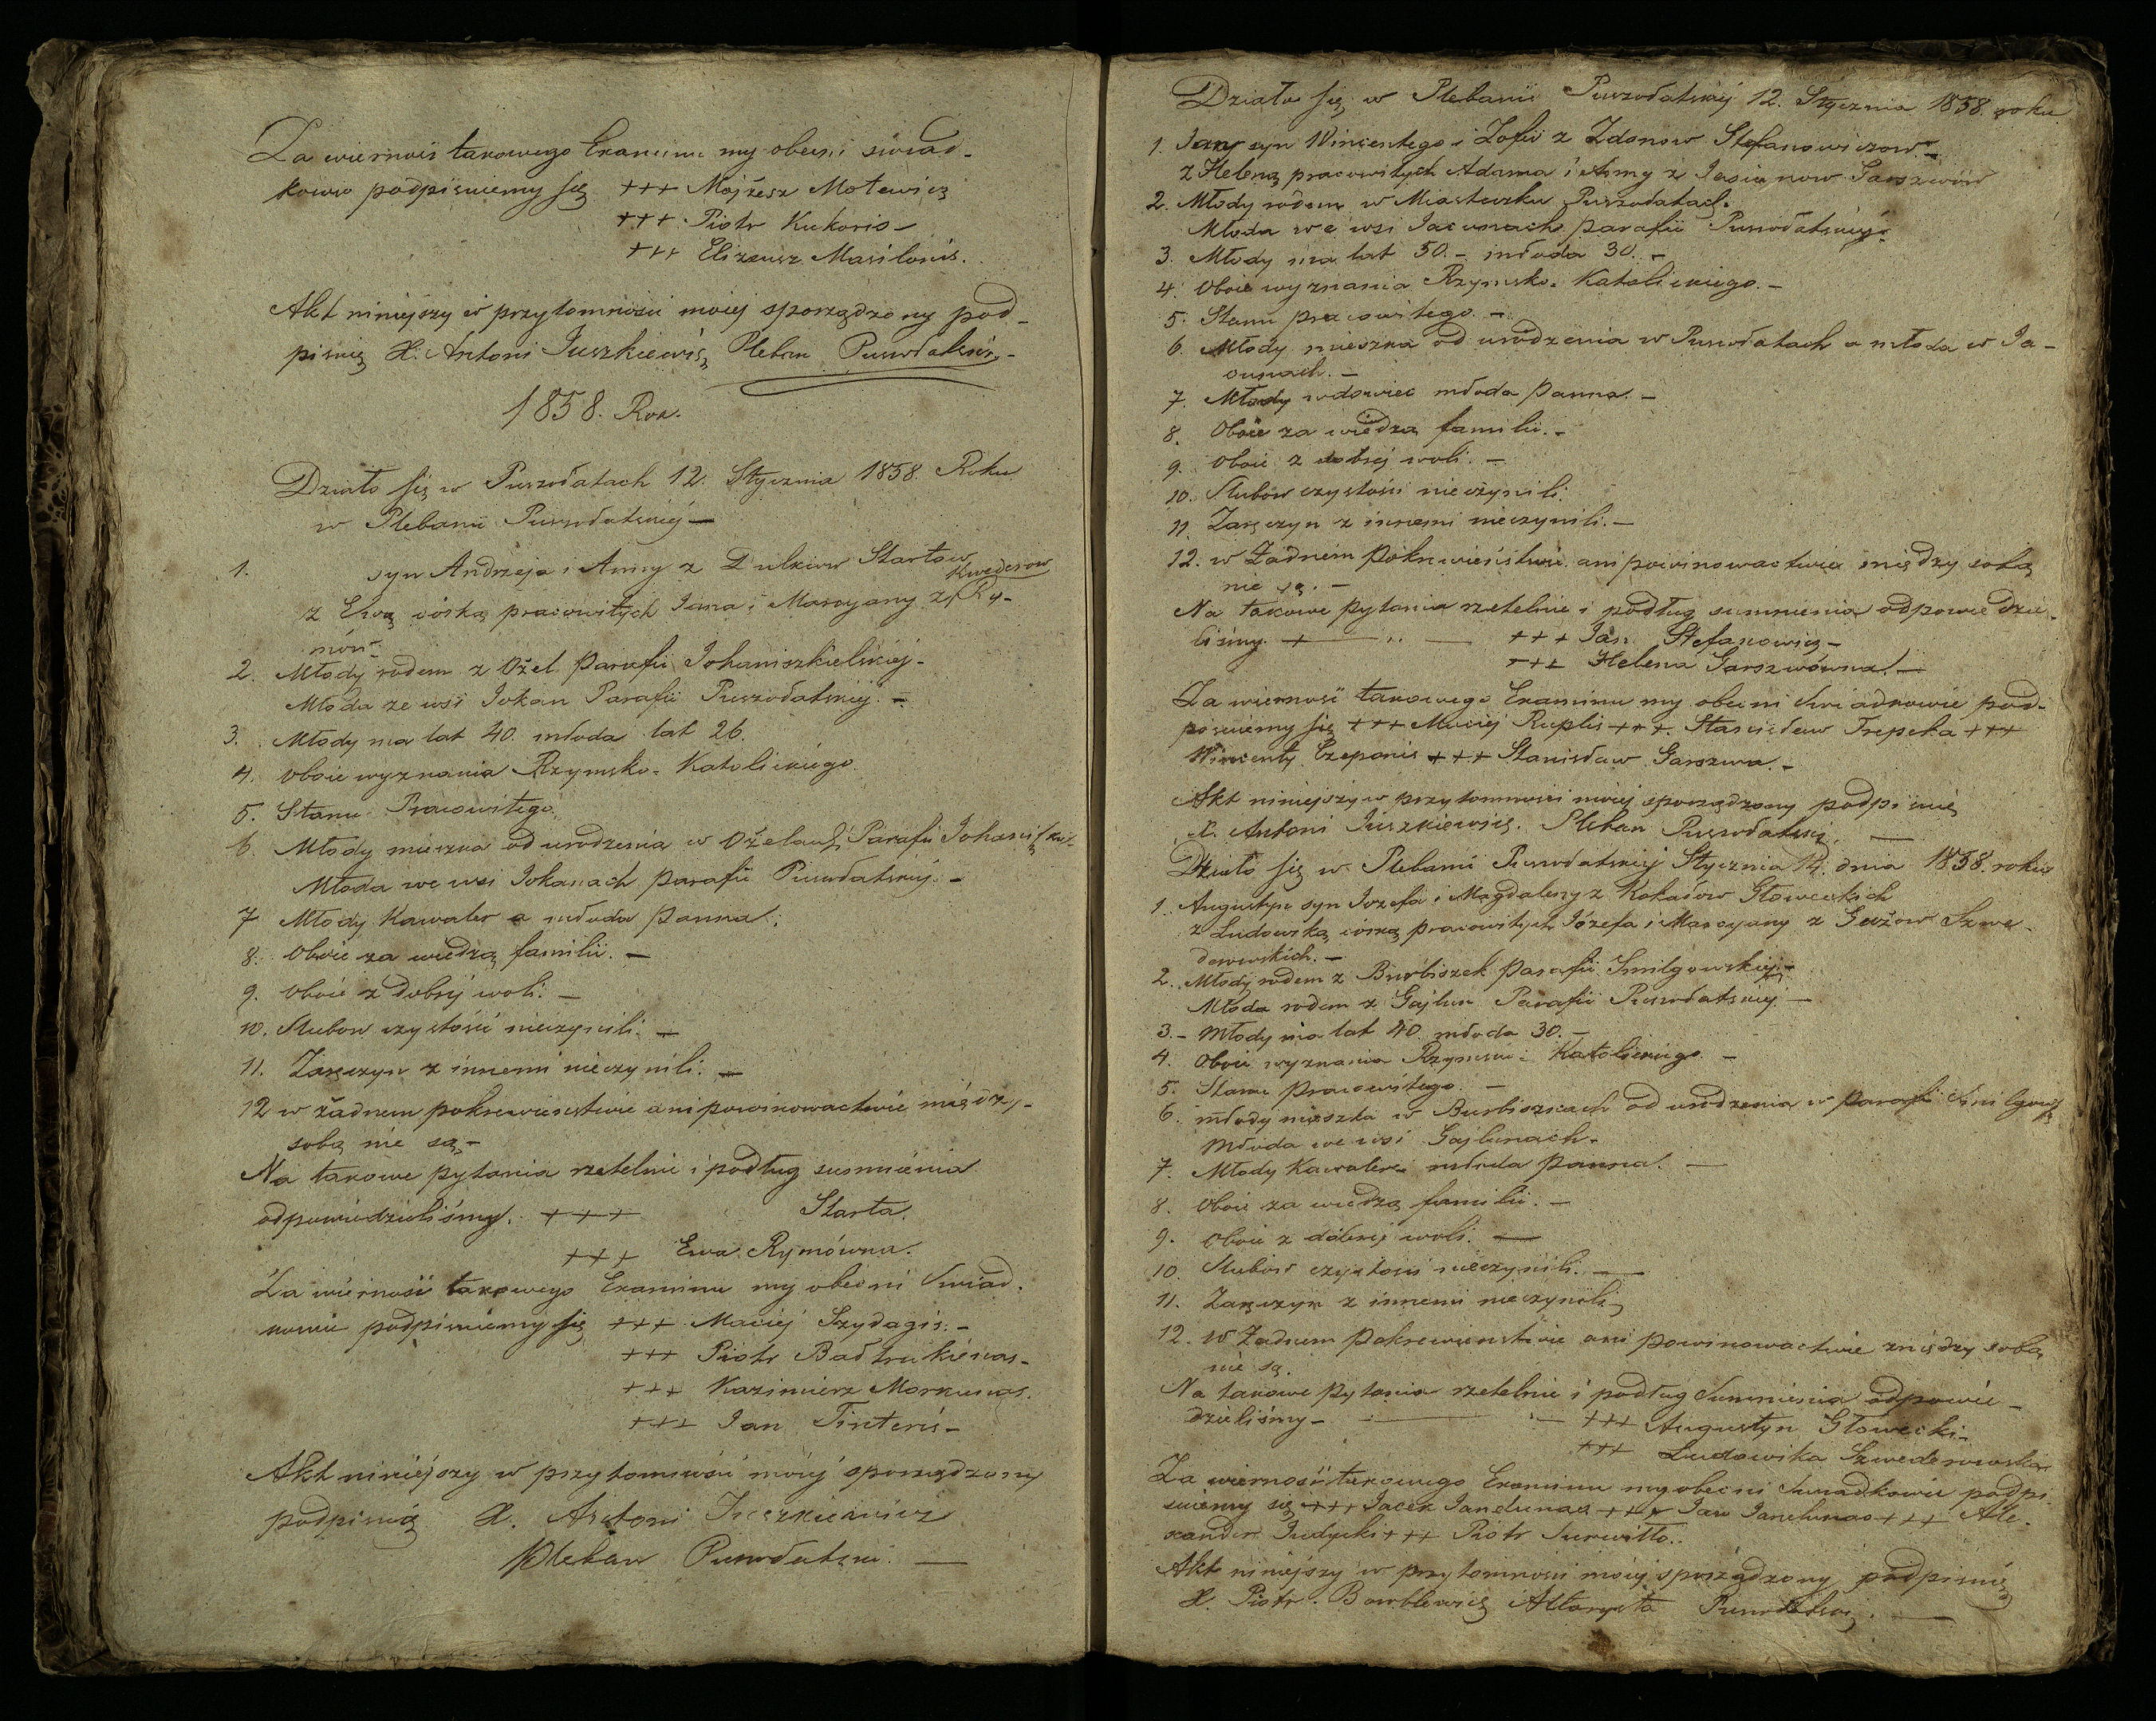 Za wierność takowego Examinu my obecni świad-
kowie podpisujemy się +++ Mojżesz Motewicz
+++ Piotr Kukoris -
+++ Elizeusz Masilonis.
Akt niniejszy w przytomności mojej sporządzony pod-
pisuię X. Antoni Juszkiewicz Pleban Puszołatski. -
1858. Rok.
Działo się w Puszołatach 12. Stycznia 1858 Roku
w Plebanii Puszołatskiéj —
1. syn Andrzeja i Anny z Dulków Startów
Kwederow
z Ewą córką pracowitych Jana i Maryanny z Ry-
mów.
2. Młody rodem z Ożel Parafii Johaniszkielskiéj -
Młoda ze wsi Jokan Parafii Puszołatskiéj. -
3. Młody ma lat 40. młoda lat 26.
4. Oboie wyznania Rzymsko-Katolickiego.
5. Stanu Pracowitego.
6. Młody mieszka od urodzenia w Ożelach Parafii
Młoda we wsi Jokanach parafii Puszołatskiéj. -
7 Młody Kawaler a młoda panna.
8. Oboie za wiedzą familii. —
9. Oboie z dobréj woli. —
10. Slubow czystości nieczynili. —
11. Zaręczyn z innemi nieczynili. —
12 w żadnem pokrewieństwie ani powinowactwie między-
sobą nie są. -
Na takowe pytania rzetelnie i podług sumnienia
odpowiedzieliśmy. +++ Starta.
+++ Ewa Rymówna.
Za wierność takowego Examinu my obecni Swiad-
kowie podpisuiemy się +++ Maciéj Szydagis. -
+++ Piotr
+++ Kazimierz Morkunas.
+++ Jan Tinteris -
Akt niniejszy w przytomności moiéj sporządzony
podpisuię X. Antoni Juszkiewicz
Pleban Puszołatski. —
Działo się w Plebanii Puszołatskiéj 12. Stycznia 1858. roku
1. Jan syn Wincentego i Zofii z Zdonow Stefanowiczow. -
z Heleną pracowitych Adama i Anny z Jasiunow Garszwów
2. Młody rodem w Miasteczku Puszołatach.
Młoda we wsi Jacunach parafii Puszołatskiéj.
3. Młody ma lat 50. - młoda 30. -
4. Oboie wyznania Rzymsko-Katolickiego. -
5. Stanu pracowitego. -
6. Młody mieszka od urodzenia w Puszołatach a młoda w Ja-
cunach. -
7. Młody wdowiec młoda panna. -
8. Oboie za wiedzą familii. -
9. Oboie z dobréj woli. -
10. Slubow czystości nieczynili.
11. Zaręczyn z innemi nieczynili. -
12. w Żadnem Pokrewieństwie ani powinowactwie między sobą
nie są. -
Na takowe pytania rzetelnie i podług sumnienia odpowiedzie-
liśmy. +++ Jan Stefanowicz -
+++ Helena Garszwówna. -
Za wierność takowego Examinu my obecni Swiadkowie pod-
pisuiemy się +++ Maciéj Ruplis +++ Stanisław Trepeka +++
Wincenty Czeponis +++ Stanisław Garszwa. -
Akt niniejszy w przytomności moiéj sporządzony podpisuię
X. Antoni Juszkiewicz. Pleban Puszołatski. —
Działo się w Plebanii Puszołatskiéj Stycznia 14. dnia 1858. roku
1. Augustyn syn Jozefa i Magdaleny z Kokaiów Głoweckich
z Ludowiką córką pracowitych Józefa i Maryanny z Gużow Szwe-
derowskich. -
2. Młody rodem z Burbiszek Parafii Smilgowskiéj. -
Młoda rodem z Gajlun Parafii Puszołatskiéj. —
3. - Młody ma lat 40 młoda 30. -
4. Oboie wyznania Rzymsko-Katolickiego. -
5. Stanu Pracowitego. -
6. młody mieszka w Burbiszkach od urodzenia w parafii
Młoda we wsi Gajlunach.
7. Młody Kawaler młoda panna. —
8. Oboie za wiedzą familii. -
9. Oboie z dobréj woli. —
10. Slubow czystości nieczynili. —
11. Zaręczyn z innemi nieczynili.
12. w Żadnem Pokrewieństwie ani powinowactwie między sobą
nie są.
Na takowe Pytania rzetelnie i podług Sumnienia odpowie-
dzieliśmy - +++ Augustyn Głowecki -
+++ Ludowika Szwederowska
Za wierność takowego Examinu my obecni Swiadkowie podpi-
suiemy się +++ Jacek Jandunas +++ Jan Jandunas +++ Ale-
xander Judycki +++ Piotr Surwiłło.
Akt niniejszy w przytomności moiéj sporządzony podpisuię
X. Piotr Altarysta Puszołatski. —